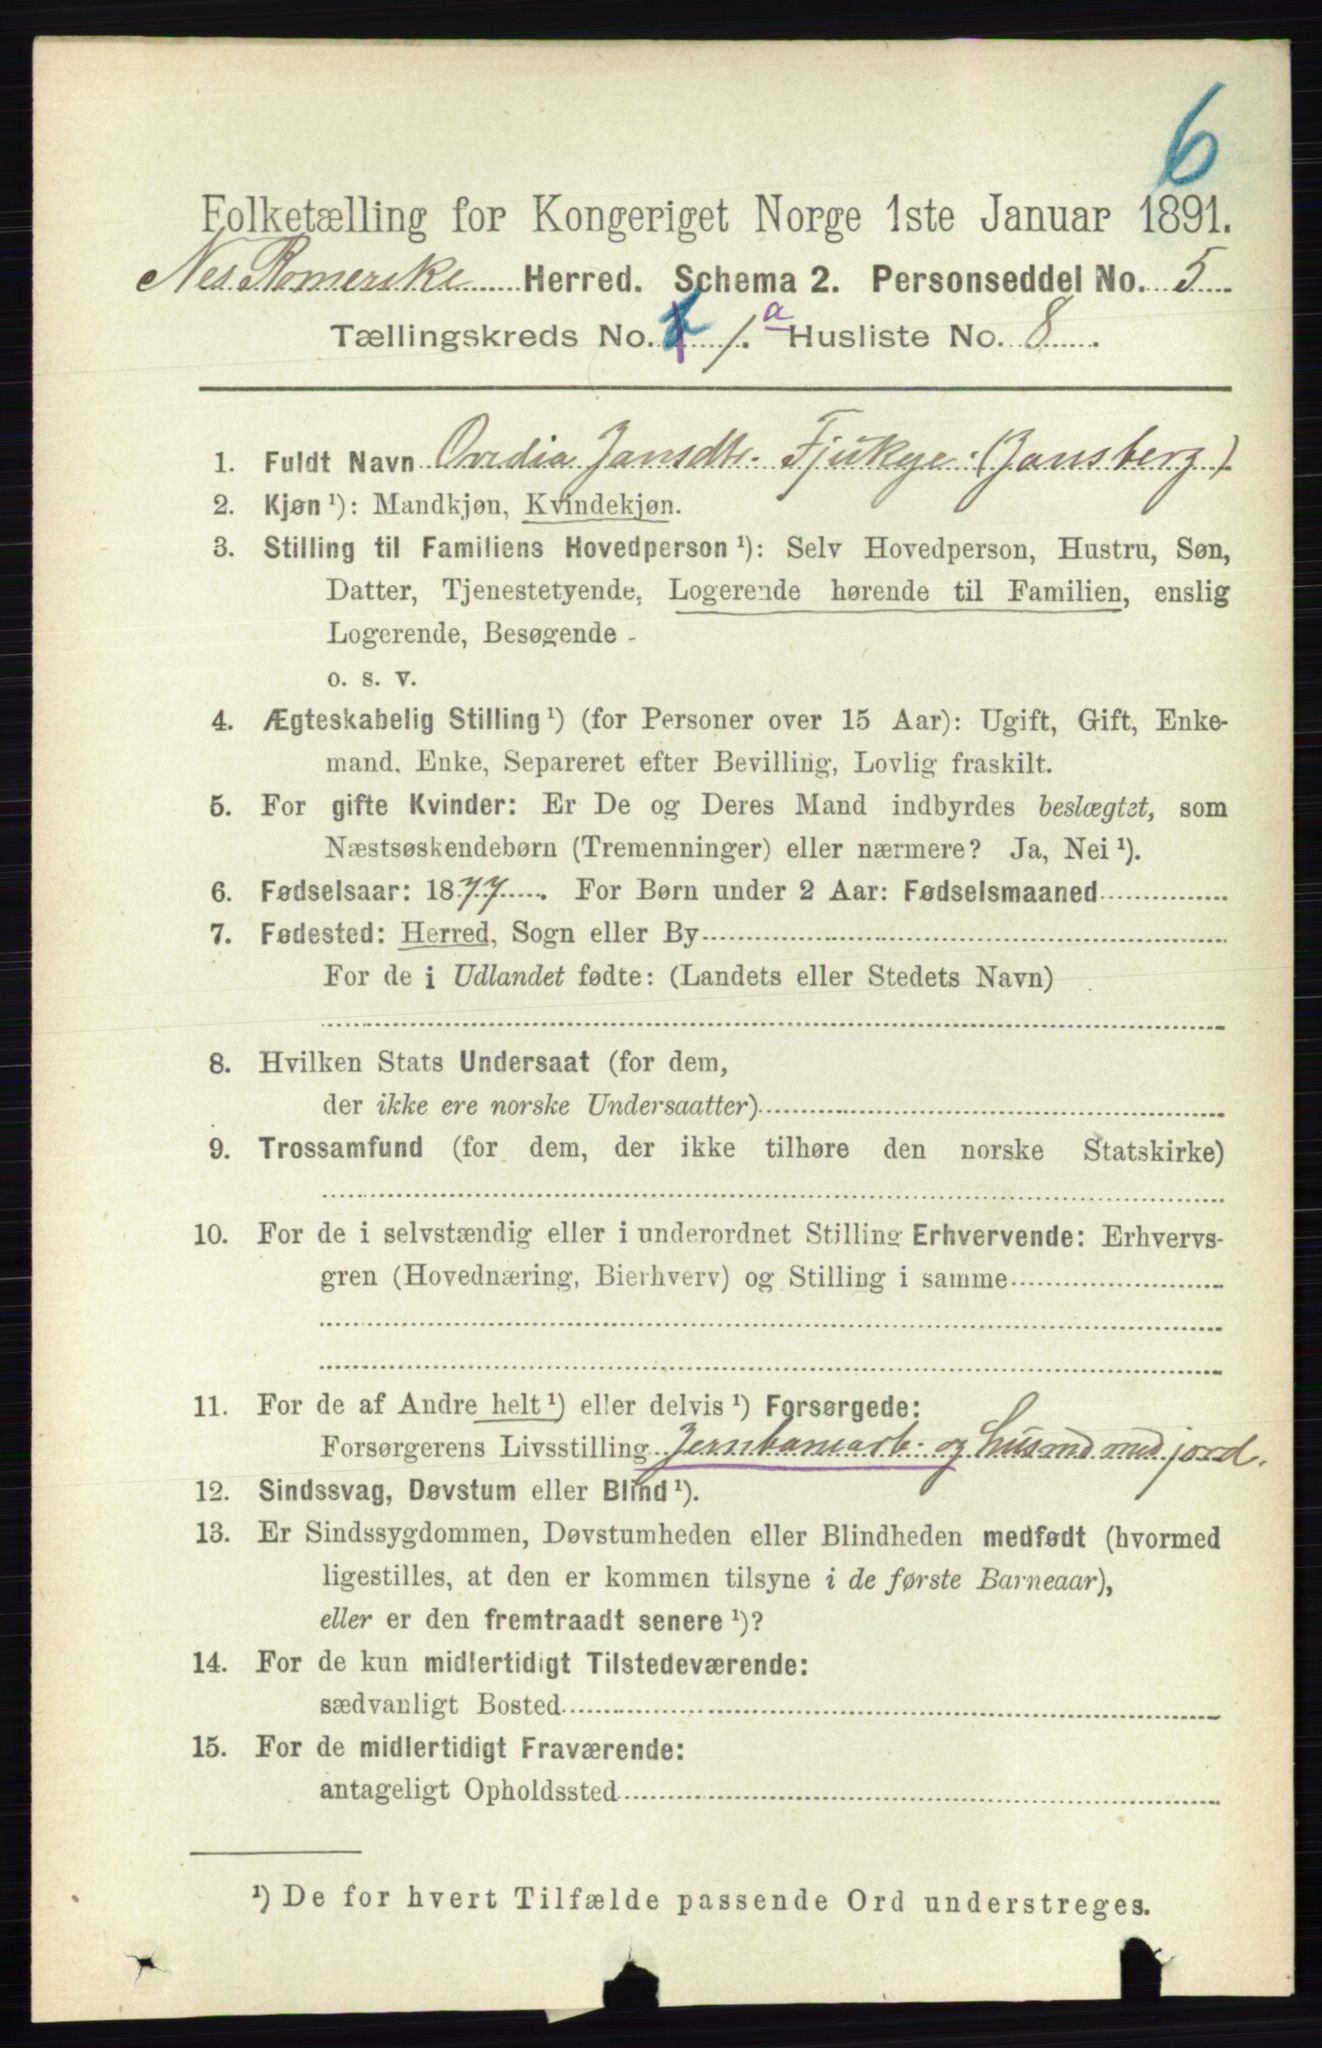 6
Folketælling for Kongeriget Norge 1ste Januar 1891.
Nes Romerike Herred. Schema 2. Personseddel No. 5
Tællingskreds No. 1. a Husliste No. 8
1. Fuldt Navn Ovedia Jansdtr. Fjukye (Jansberg)
2. Kjøn ¹): Mandkjøn, Kvindekjøn.
3. Stilling til Familiens Hovedperson ¹): Selv Hovedperson, Hustru, Søn,
Datter, Tjenestetyende, Logerende hørende til Familien, enslig
Logerende, Besøgende
o. s. v.
4. Ægteskabelig Stilling ¹) (for Personer over 15 Aar): Ugift, Gift, Enke-
mand, Enke, Separeret efter Bevilling, Lovlig fraskilt.
5. For gifte Kvinder: Er De og Deres Mand indbyrdes beslægtet, som
Næstsøskendebørn (Tremenninger) eller nærmere? Ja, Nei ¹).
6. Fødselsaar: 1877. For Børn under 2 Aar: Fødselsmaaned
7. Fødested: Herred, Sogn eller By
For de i Udlandet fødte: (Landets eller Stedets Navn)
8. Hvilken Stats Undersaat (for dem,
der ikke ere norske Undersaatter)
9. Trossamfund (for dem, der ikke tilhøre den norske Statskirke)
10. For de i selvstændig eller i underordnet Stilling Erhvervende: Erhvervs-
gren (Hovednæring, Bierhverv) og Stilling i samme
11. For de af Andre helt ¹) eller delvis ¹) Forsørgede:
Forsørgerens Livsstilling Jernbanearb. og Husmd med jord.
12. Sindssvag, Døvstum eller Blind ¹).
13. Er Sindssygdommen, Døvstumheden eller Blindheden medfødt (hvormed
ligestilles, at den er kommen tilsyne i de første Barneaar),
eller er den fremtraadt senere ¹)?
14. For de kun midlertidigt Tilstedeværende:
sædvanligt Bosted
15. For de midlertidigt Fraværende:
antageligt Opholdssted
¹) De for hvert Tilfælde passende Ord understreges.